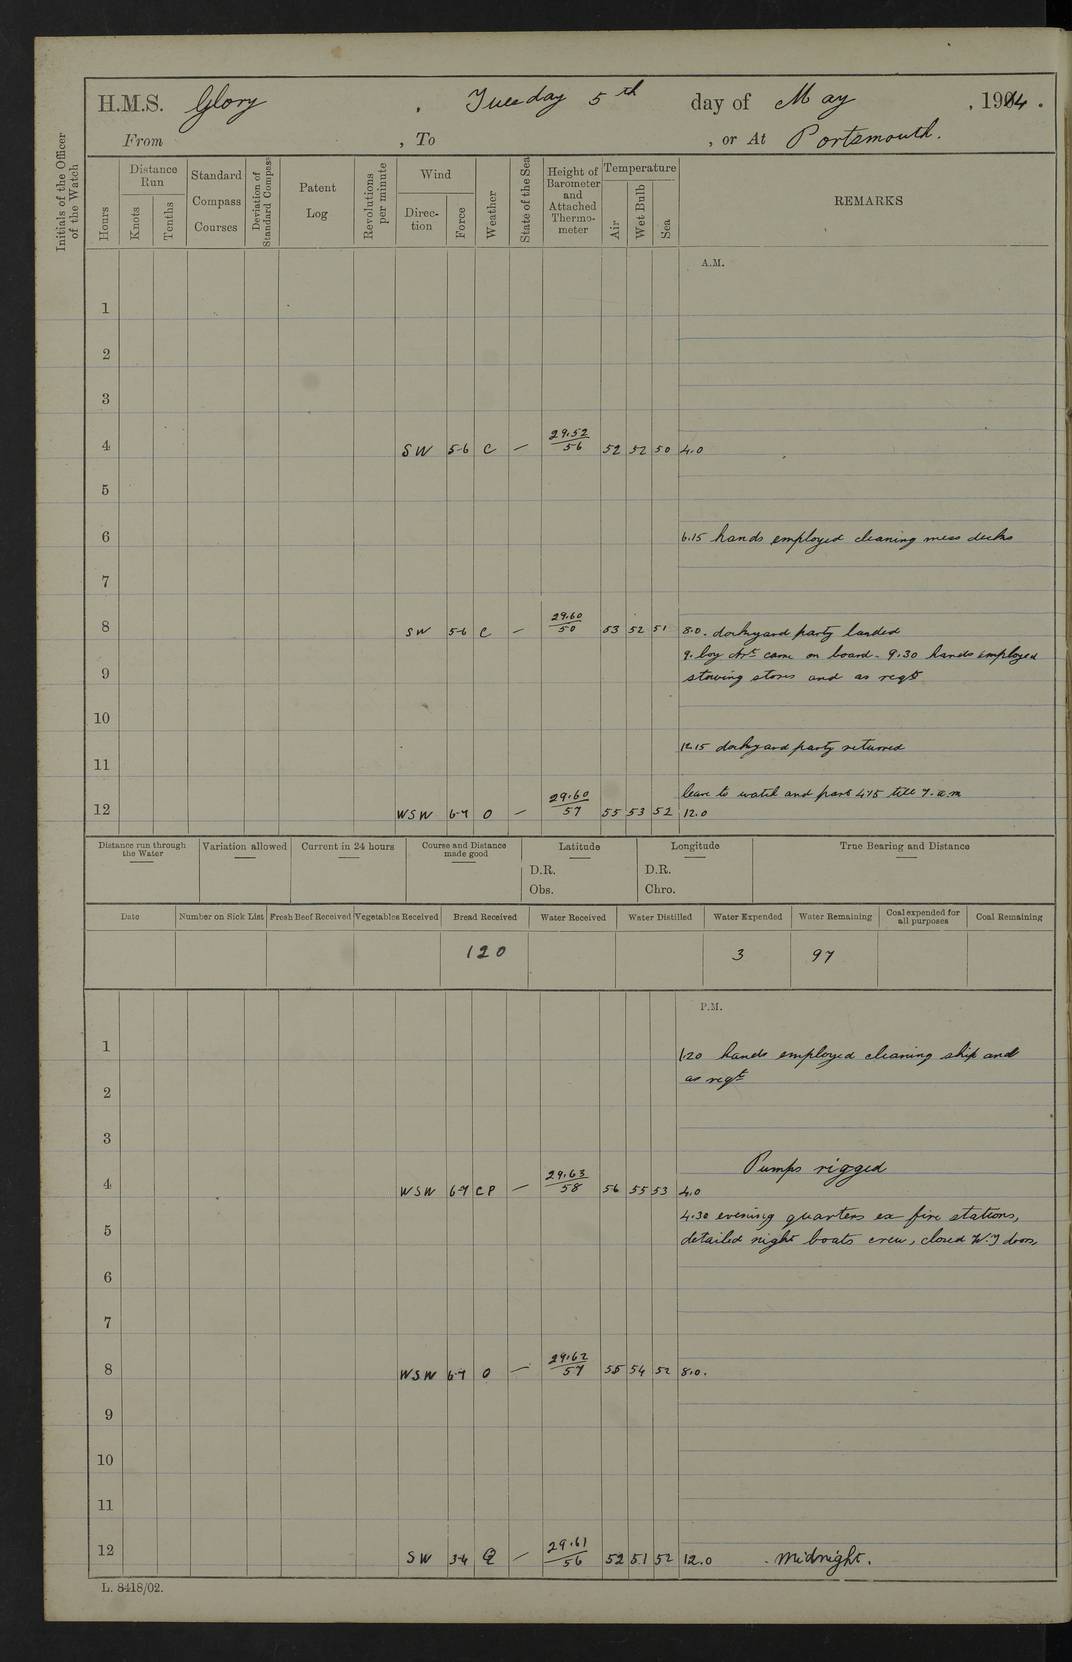 H.M.S. Glory , Tuesday 5th day of May , 1914 .
From , To , or At Portsmouth.
Initials of the Officer of the Watch
Hours
Distance Run
Knots
Tenths
Standard Compass Courses
Deviation of Standard Compass
Patent Log
Revolutions per minute
Wind
Direc-tion
Force
Weather
State of the Sea
Height of Barometer and Attached Thermo-meter
Temperature
Air
Wet Bulb
Sea
REMARKS
A.M.
1
2
3
4 SW 5-6 C — 29.52/56 52 52 50 4.0
5
6 6.15 hands employed cleaning mess decks
7
8 SW 5-6 C — 29.60/50 53 52 51 8.0. dockyard party landed
9. boy Art. came on board - 9.30 hands employed
9 stowing stores and as reqd
10
12.15 dockyard party returned
11
leave to watch and part 4.15 till 7. a.m
12 WSW 6-7 O — 29.60/57 55 53 52 12.0
Distance run through the Water
Variation allowed
Current in 24 hours
Course and Distance made good
Latitude
D.R.
Obs.
Longitude
D.R.
Chro.
True Bearing and Distance
Date
Number on Sick List
Fresh Beef Received
Vegetables Received
Bread Received
Water Received
Water Distilled
Water Expended
Water Remaining
Coal expended for all purposes
Coal Remaining
120 3 97
P.M.
1 1.20 hands employed cleaning ship and
as reqd
2
3
Pumps rigged
4 WSW 6-7 CP — 29.63/58 56 55 53 4.0
4.30 evening quarters ex fire stations,
5 detailed night boats crew, closed W.T doors,
6
7
8 WSW 6-7 O — 29.62/57 55 54 52 8.0.
9
10
11
12 SW 3-4 — 29.61/56 52 51 52 12.0 Midnight.
L. 8418/02.